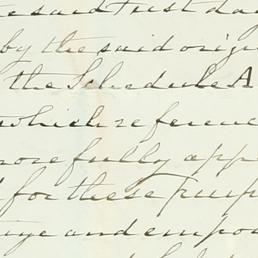 said Trust
by the said orig
the Schedule A
which referenc
more fully app
for these purp
and empo